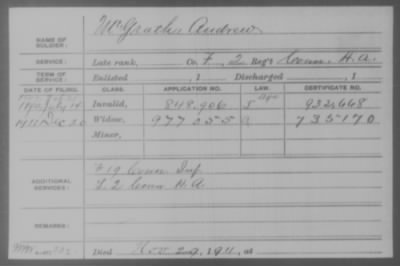 McGrath, Andrew
NAME OF SOLDIER:
SERVICE: Late rank, Co. F, 2 Reg't Conn. H.A.
TERM OF SERVICE: Enlisted , 1 Discharged , 1
DATE OF FILING. CLASS. APPLICATION NO. LAW. CERTIFICATE NO.
Invalid, 848.906 932,668
1911 Dec 20 Widow, 977255 735170
Minor,
ADDITIONAL SERVICES:
F 19 Conn Inf
L. 2 Conn H.A.
REMARKS:
Died Nov 29, 1911, at